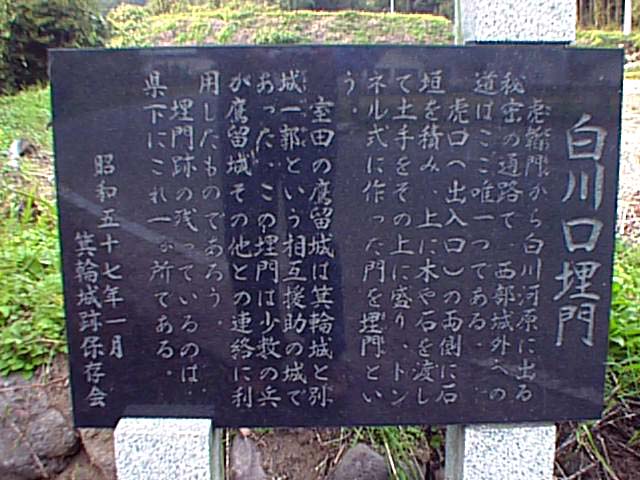 白川口埋門
虎韜門から白川河原に出る
秘密の通路で、西部域外への
道はここ唯一つである。
虎口へ出入口)の両側に石
垣を積み、上に木や石を渡し
て土手をその上に盛り、トン
ネル式に作った門を埋門とい
う。
室田の鷹留城は箕輪城と別
城一郭という相互援助の城で
あった。この埋門は少数の兵
が鷹留城その他との連絡に利
用したものであろう。
埋門跡の残っているのは、
県下にこれ一ヶ所である。
昭和五十七年一月
箕輪城跡保存会